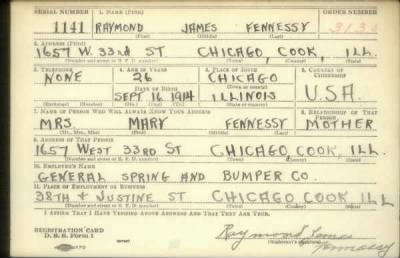 SERIAL NUMBER 1. NAME (Print) ORDER NUMBER
1141 RAYMOND JAMES FENNESSY 313
(First) (Middle) (Last)
2. ADDRESS (Print)
1657 W. 33rd ST CHICAGO, COOK, ILL.
(Number and street or R. F. D. number) (Town) (County) (State)
3. TELEPHONE 4. AGE IN YEARS 5. PLACE OF BIRTH 6. COUNTRY OF CITIZENSHIP
NONE 26 CHICAGO
DATE OF BIRTH (Town or county)
SEPT 16 1914 ILLINOIS U.S.A.
(Exchange) (Number) (Mo.) (Day) (Yr.) (State or country)
7. NAME OF PERSON WHO WILL ALWAYS KNOW YOUR ADDRESS 8. RELATIONSHIP OF THAT PERSON
MRS. MARY FENNESSY MOTHER
(Mr., Mrs., Miss) (First) (Middle) (Last)
9. ADDRESS OF THAT PERSON
1657 WEST 33RD ST CHICAGO, COOK, ILL.
(Number and street or R. F. D. number) (Town) (County) (State)
10. EMPLOYER'S NAME
GENERAL SPRING AND BUMPER CO.
11. PLACE OF EMPLOYMENT OR BUSINESS
38TH & JUSTINE ST CHICAGO COOK ILL
(Number and street or R. F. D. number) (Town) (County) (State)
I AFFIRM THAT I HAVE VERIFIED ABOVE ANSWERS AND THAT THEY ARE TRUE.
REGISTRATION CARD
D. S. S. Form 1
Raymond James
Fennessy
(Registrant's signature)